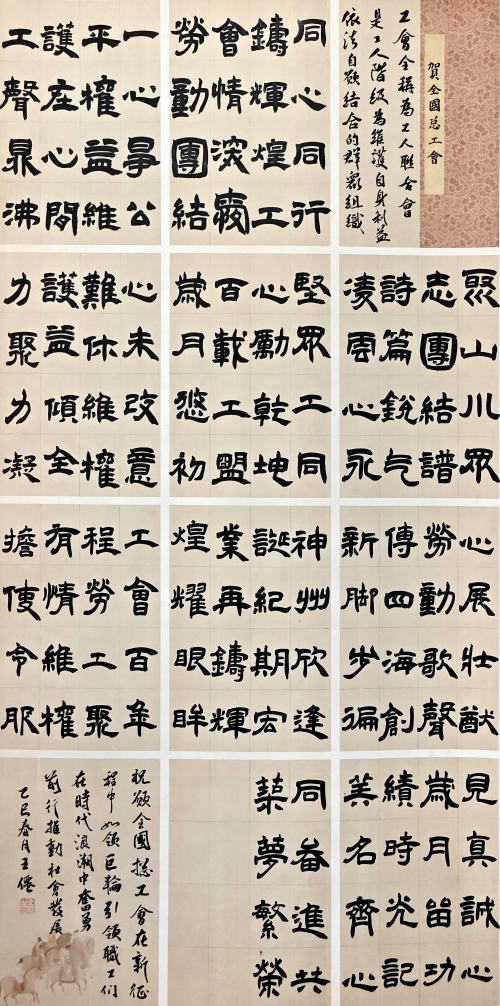 賀全國总工會
工會全稱為工人聯合會
是工人階級為維護自身利益
依法自願結合的群眾組織
同心同行
鑄輝煌工
會情深
勞動團結
一心爲公
平權益維
護在心間
工聲鼎沸
聚山川眾
志團結譜
詩篇銳气
凌雲心永
堅眾工同
心勵乾坤
百載工盟
歲月悠初
心未改意
難休維權
護益傾全
力聚力凝
心展壯猷
勞動歌聲
傳四海創
新脚步徧
神州欣逢
誕紀期宏
業再鑄輝
煌耀眼眸
工會百年
程勞工聚
有情維權
擔使令服
見真誠心
歲月留功
績時光記
美名齊心
同奮進共
築夢繁榮
祝願全國總工會在新征
程中如領巨輪引領職工们
在時代浪潮中奮勇
前行推動社會發展
乙巳春月王